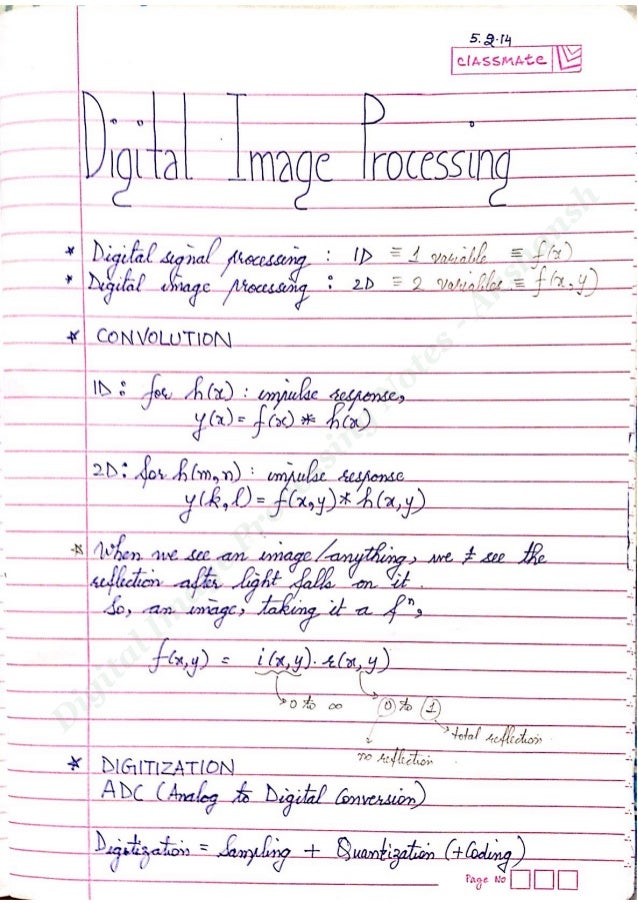 5.2.14
classmate
Digital Image Processing
* Digital signal processing : 1D ≡ 1 variable ≡ f(x)
* Digital image processing : 2D ≡ 2 variables ≡ f(x,y)
* CONVOLUTION
1D : for h(x) : impulse response,
y(x) = f(x) * h(x)
2D : for h(m,n) : impulse response
y(k,l) = f(x,y) * h(x,y)
* When we see an image/anything, we see the
reflection after light falls on it.
So, an image, taking it a fⁿ,
f(x,y) = i(x,y). r(x,y)
0 to ∞ 0 to 1
total reflection
no reflection
* DIGITIZATION
ADC (Analog to Digital Conversion)
Digitization = Sampling + Quantization (+Coding)
Page No
Digital Image Processing Notes - Anshmansh